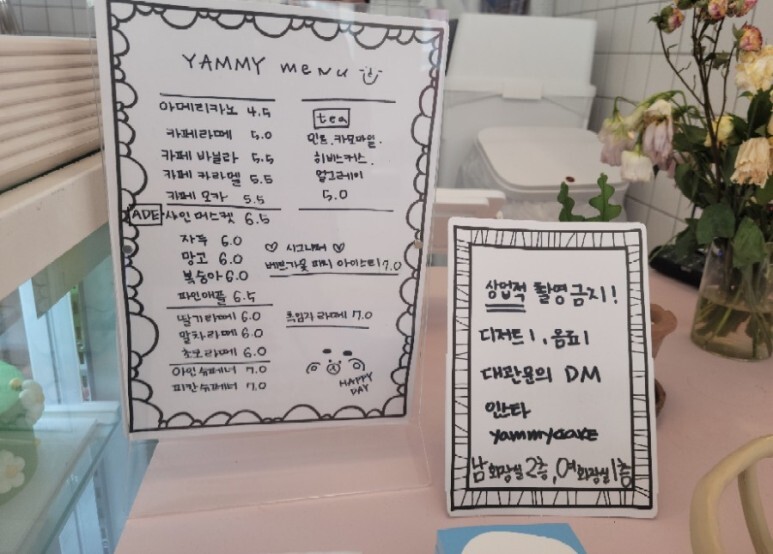 YAMMY menu
아메리카노 4.5
카페라떼 5.0
카페 바닐라 5.5
카페 카라멜 5.5
카페 모카 5.5
ADE 샤인머스켓 6.5
자두 6.0
망고 6.0
복숭아 6.0
파인애플 6.5
딸기라떼 6.0
말차라떼 6.0
초코라떼 6.0
아인슈페너 7.0
피칸슈페너 7.0
tea
민트.카모마일.
히비스커스.
얼그레이
5.0
♡ 시그니처 ♡
피치 아이스티 7.0
흑임자라떼 7.0
HAPPY
DAY
상업적 촬영금지!
디저트1, 음료1
대관문의 DM
인스타
yammycake
남화장실 2층, 여화장실 1층